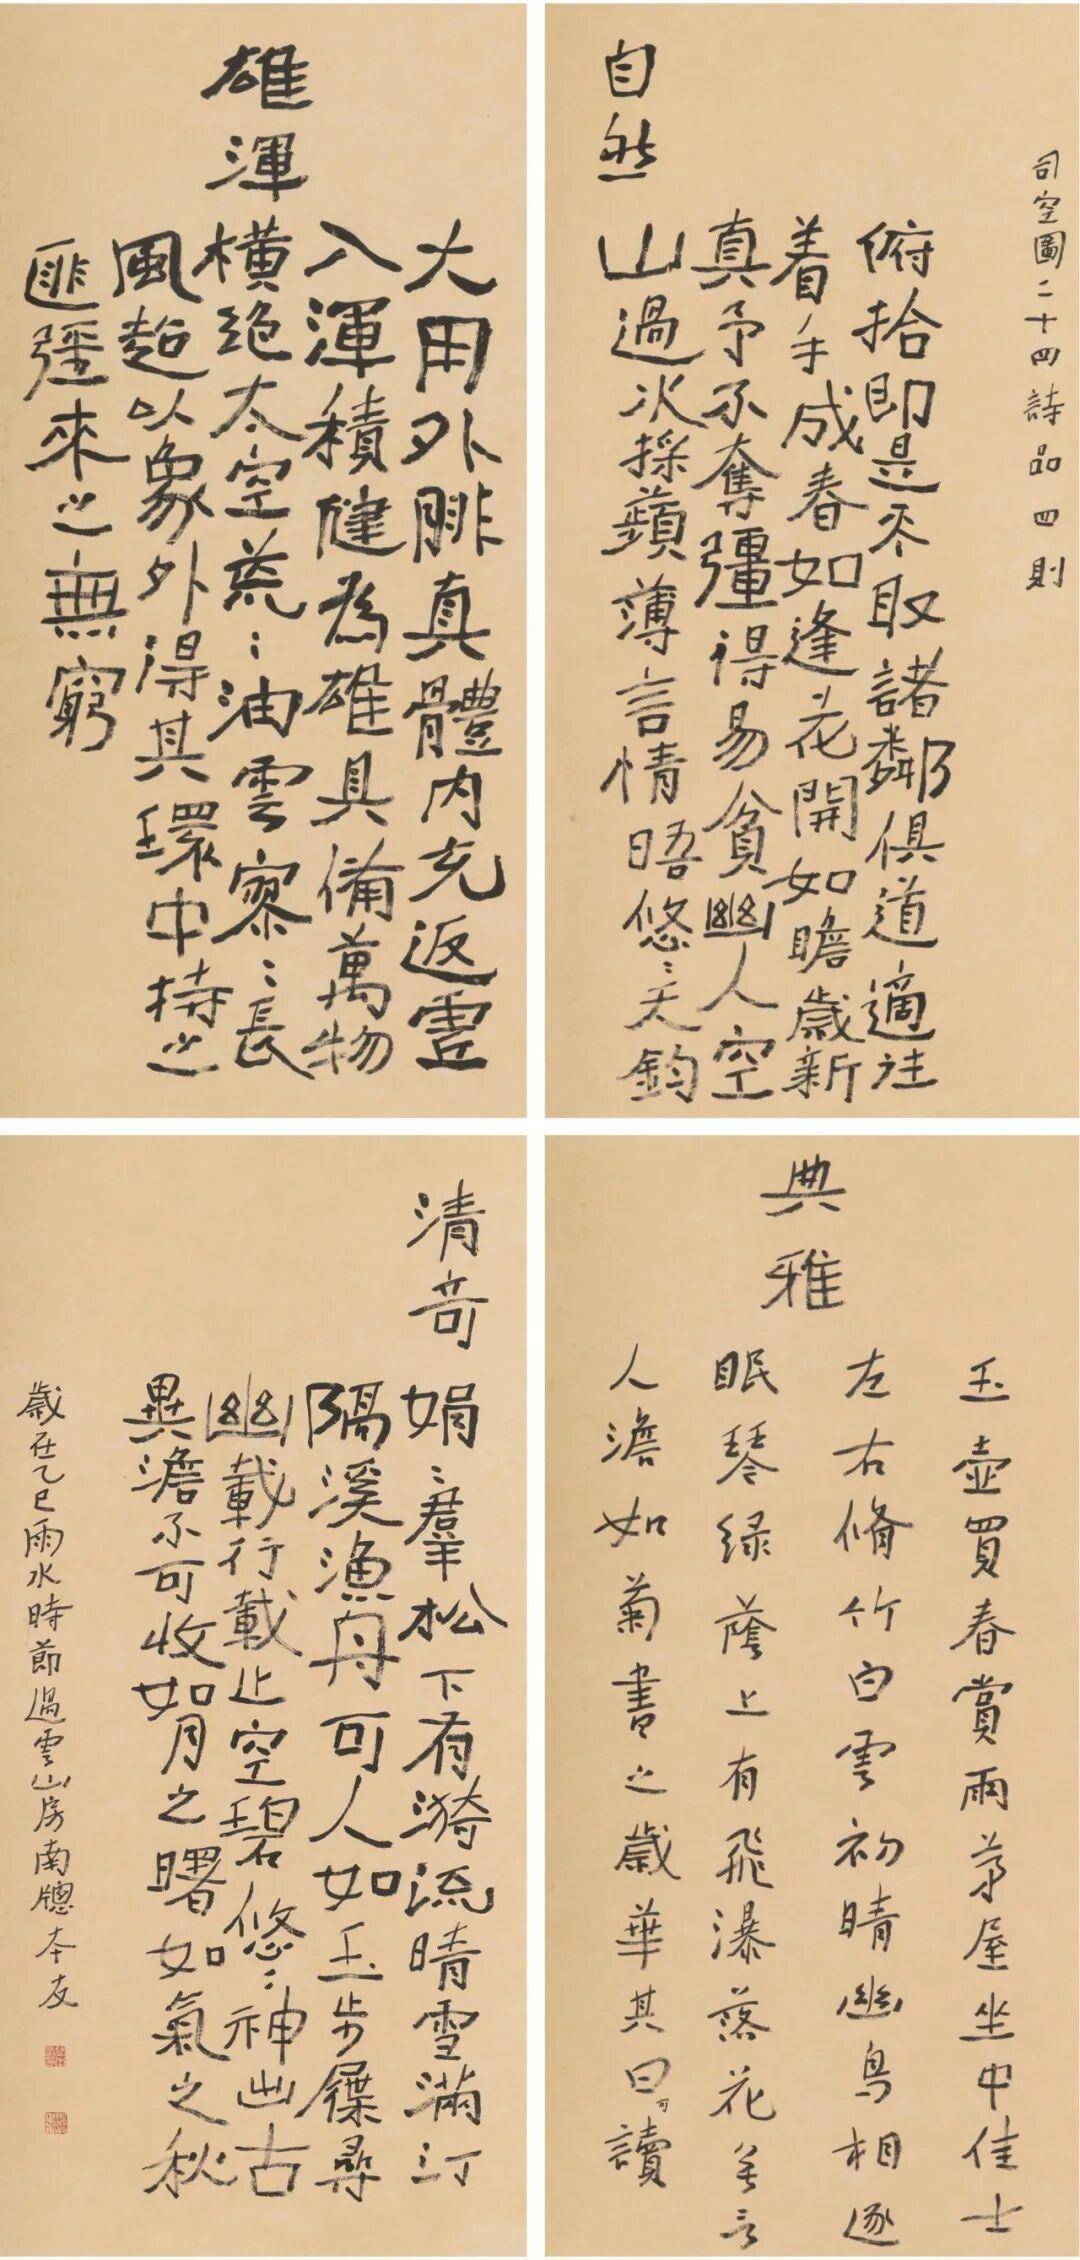 司空圖二十四詩品四則
自然
俯拾即是不取諸鄰俱道適往
着手成春如逢花開如瞻歲新
真予不奪彊得易貧幽人空
山過水採蘋薄言情晤悠〻天鈞
雄渾
大用外腓真體內充返虛
入渾積健為雄具備萬物
橫絕太空荒〻油雲寥〻長
風超以象外得其環中持之
匪彊來之無窮
典雅
玉壺買春賞雨茅屋坐中佳士
左右脩竹白雲初晴幽鳥相逐
眠琴綠蔭上有飛瀑落花無言
人澹如菊書之歲華其曰可讀
清奇
娟〻羣松下有漪流晴雪滿汀
隔溪漁舟可人如玉步屧尋
幽載行載止空碧悠〻神出古
異澹不可收如月之曙如氣之秋
歲在乙巳雨水時節過雲山房南牕本友